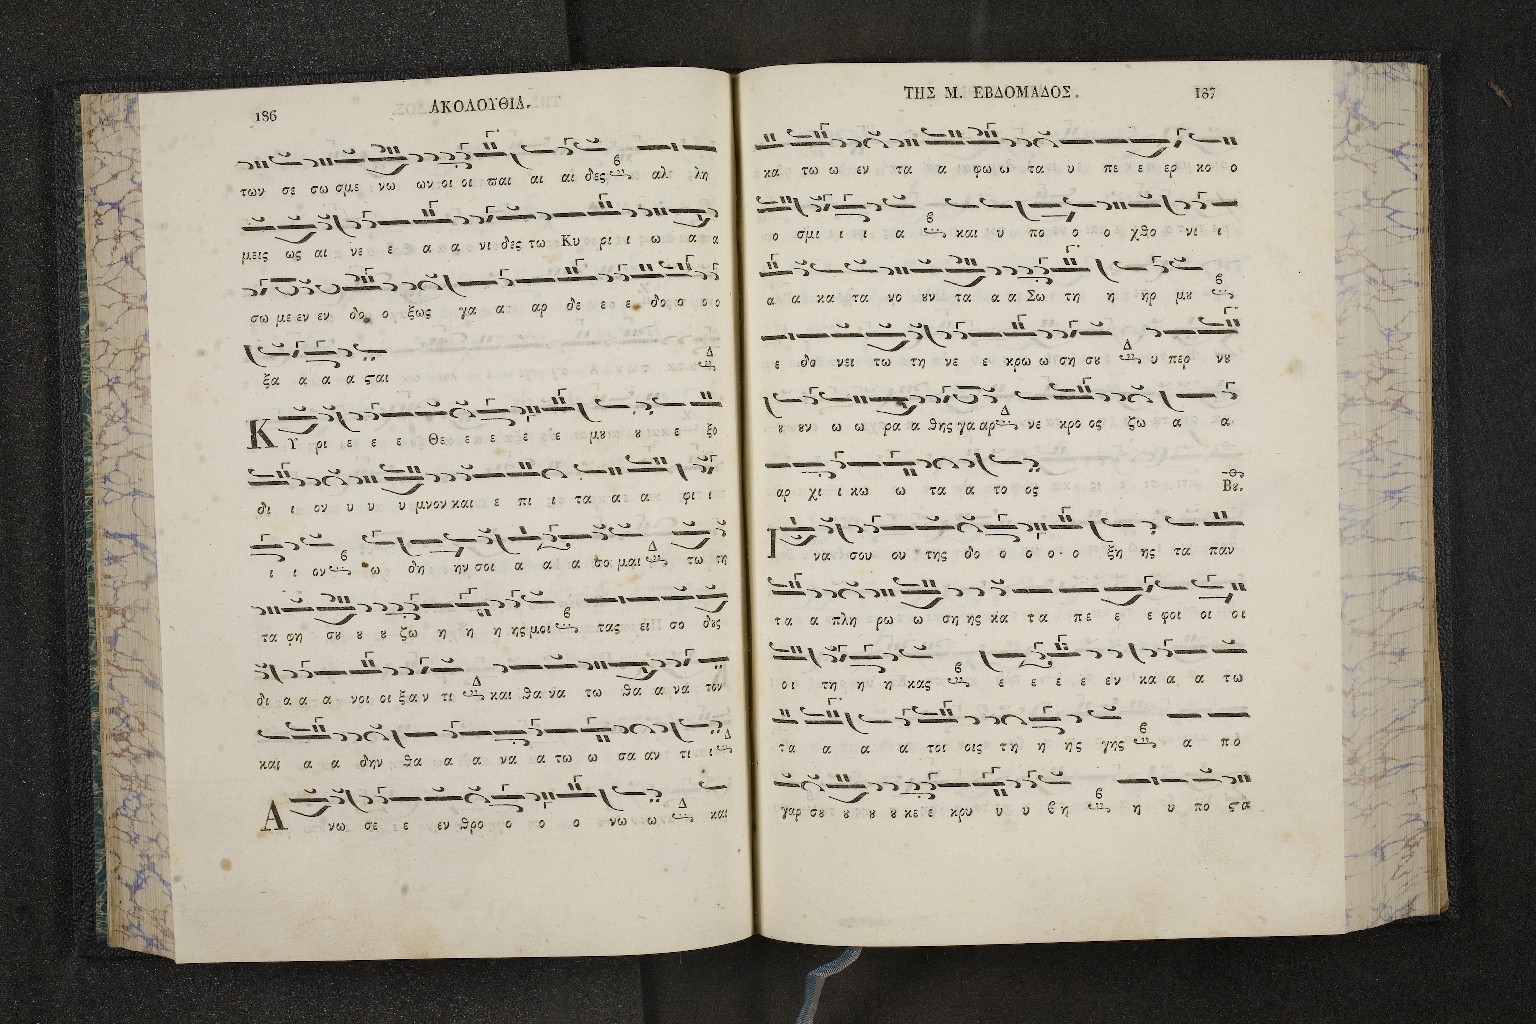 186 ΑΚΟΛΟΥΘΙΑ.
των σε σω σμε νω ων οι οι παι αι αι δες αλ λη
μεις ως αι νε ε α α νι δες τω Κυ ρι ι ω α α
σω με εν εν δο ο ξως γα α αρ δε ε ε δο ο ο ο
ξα α α α ϛαι
Κ Υ ρι ε ε ε Θε ε ε ε ε μου ου ε ξο
δι ι ον υ υ υ μνον και ε πι ι τα α α φι ι
ι ι ον ω δη ην σοι α α α σο μαι τω τη
τα φη σου ου ου ζω η η η ης μοι τας ει σο δους
δι α α α νοι οι ξα ν τι και θα να τω θα α να τον
και α α δην θα α α να α τω ω σα αν τι ι
Α νω σε ε εν θρο ο ο ο νω ω και
ΤΗΣ Μ. ΕΒΔΟΜΑΔΟΣ. 187
κα τω ω εν τα α φω ω τα υ πε ε ερ κο ο
ο σμι ι ι α και υ πο ο ο χθο νι ι
α α κα τα νο ουν τα α α Σω τη η ηρ μου
ε δο νει τω τη νε ε κρω ω ση σου υ περ νου
ου ουν ω ω ρα α θης γα αρ νε κρο ος ζω α α
αρ χι ι κω ω τα α το ος Βου.
Ι να σου ου της δο ο ο ο ο ξη ης τα παν
τα α πλη ρω ω ση ης κα τα πε ε ε φοι οι οι
οι τη η η κας ε ε ε ε εν κα α α τω
τα α α α τοι οις τη η ης γης α πο
γαρ σου ου ου ου κε ε κρυ υ υ βη η υ πο ϛα